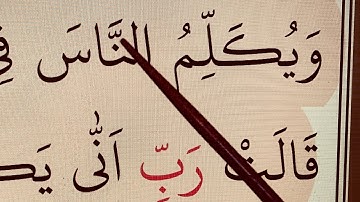 وَيُكَلِّمُ النَّاسَ فِي
قَالَتْ رَبِّ اَنّٰى يَك